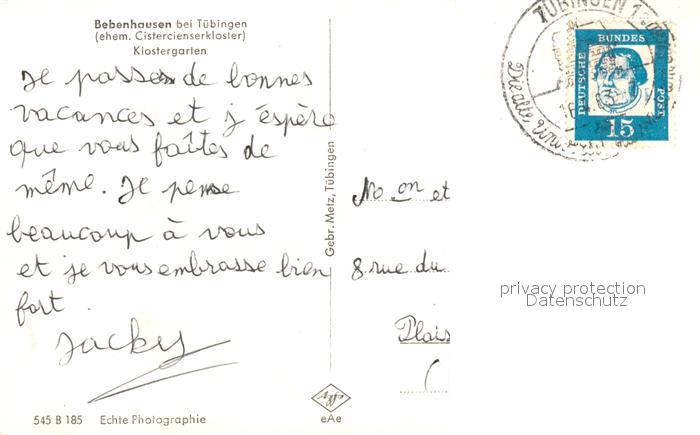 Bebenhausen bei Tübingen
(ehem. Cistercienserkloster)
Klostergarten
Je passe de bonnes
vacances et j'éspère
que vous faîtes de
même. Je pense
beaucoup à vous
et je vous embrasse bien
fort
Jacky
545 B 185 Echte Photographie
Gebr. Metz, Tübingen
eAe
TÜBINGEN
Die alte
DEUTSCHE
BUNDES
POST
15
et
8 rue du
Plais
(
privacy protection
Datenschutz